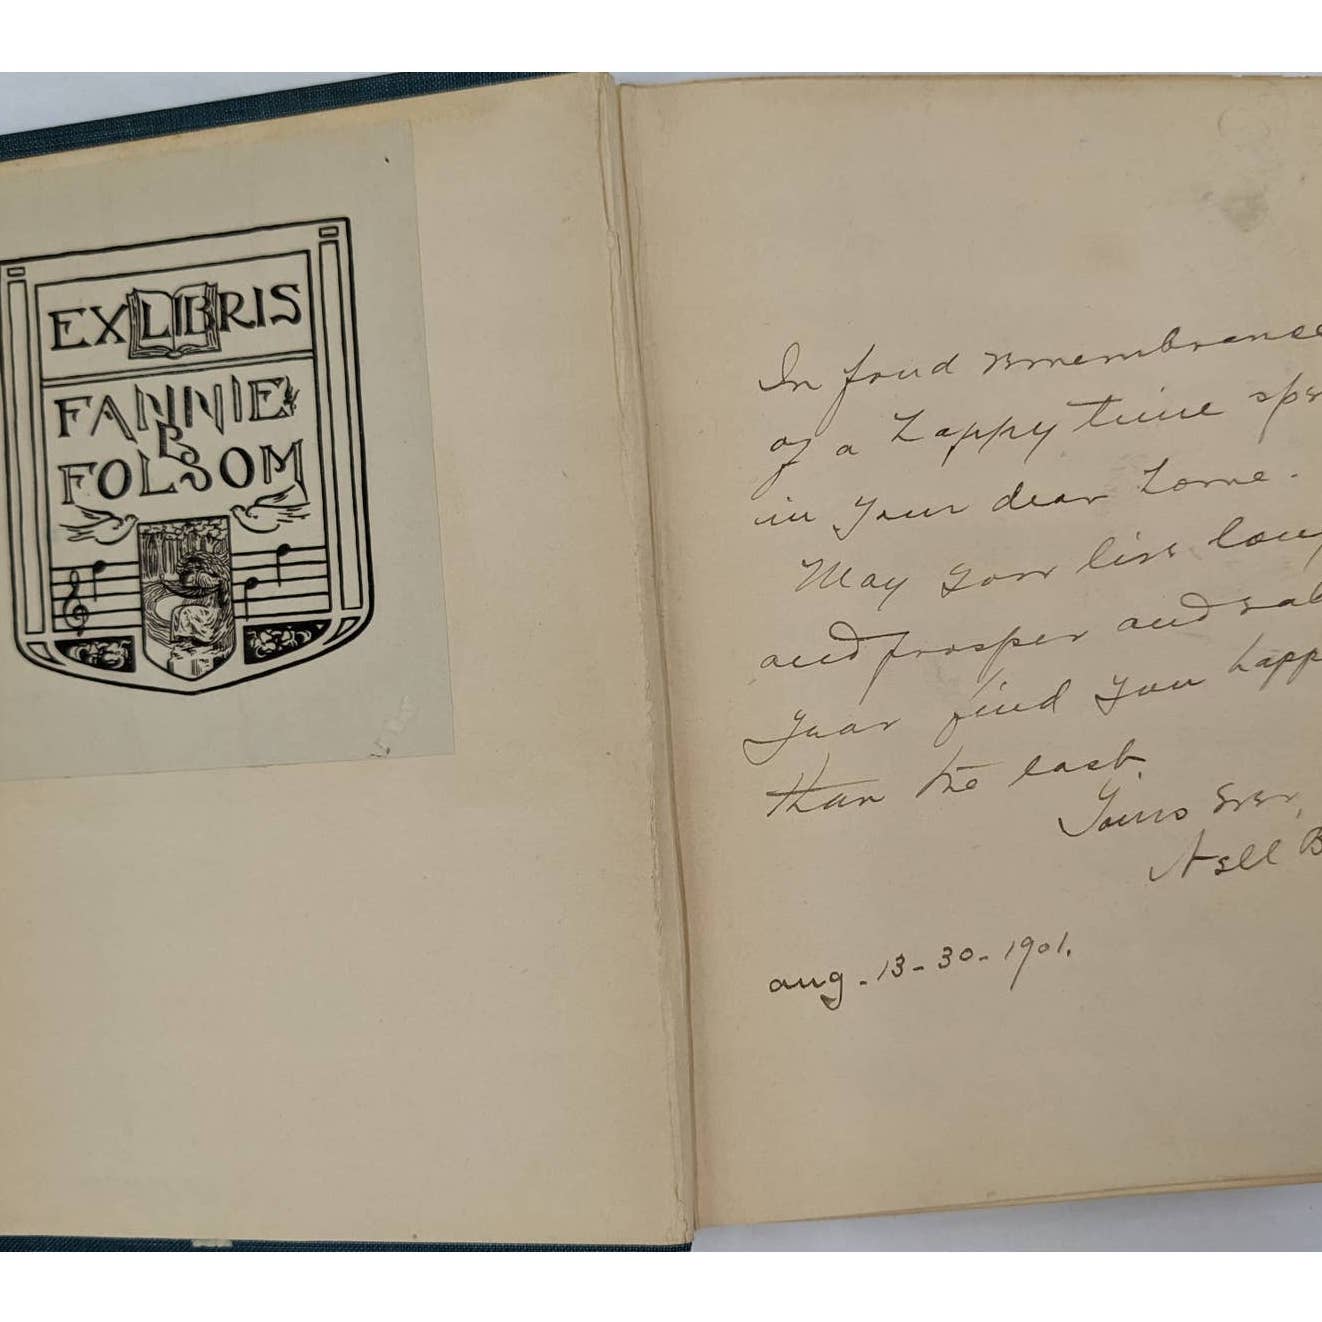 EX LIBRIS
FANNIE
B
FOLSOM
In fond remembrance
of a happy time
in your dear home.
May you live
and prosper and
year find you
than the last.
Yours Ever,
Nell B
Aug. 13-30-1901.